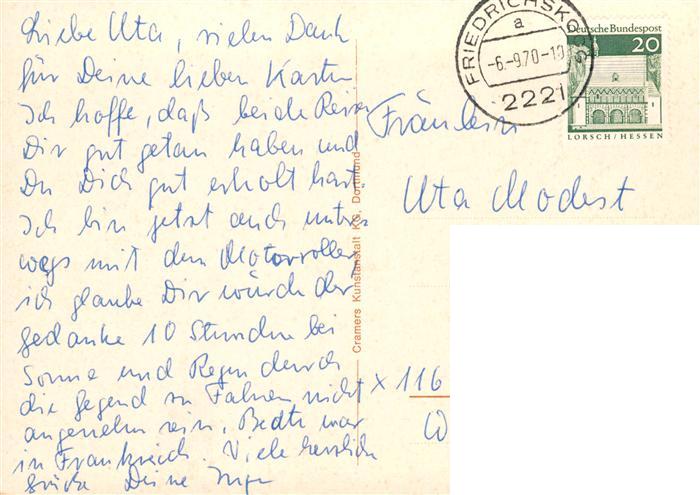 Liebe Uta, vielen Dank
für Deine lieben Karten
Ich hoffe, daß beide Reisen
Dir gut getan haben und
Du Dich gut erholt hast.
Ich bin jetzt auch unter-
wegs mit dem Motorroller,
ich glaube Dir würde der
gedanke 10 Stunden bei
Sonne und Regen durch
die gegend zu Fahren nicht
angenehm sein, war
in Frankreich. Viele herzliche
Grüße Deine Inge
Cramers Kunstanstalt KG, Dortmund
FRIEDRICHSKOOG
a
-6.-9.70-10
2221
Deutsche Bundespost
20
LORSCH/HESSEN
Fräulein
Uta Modest
x 116
W